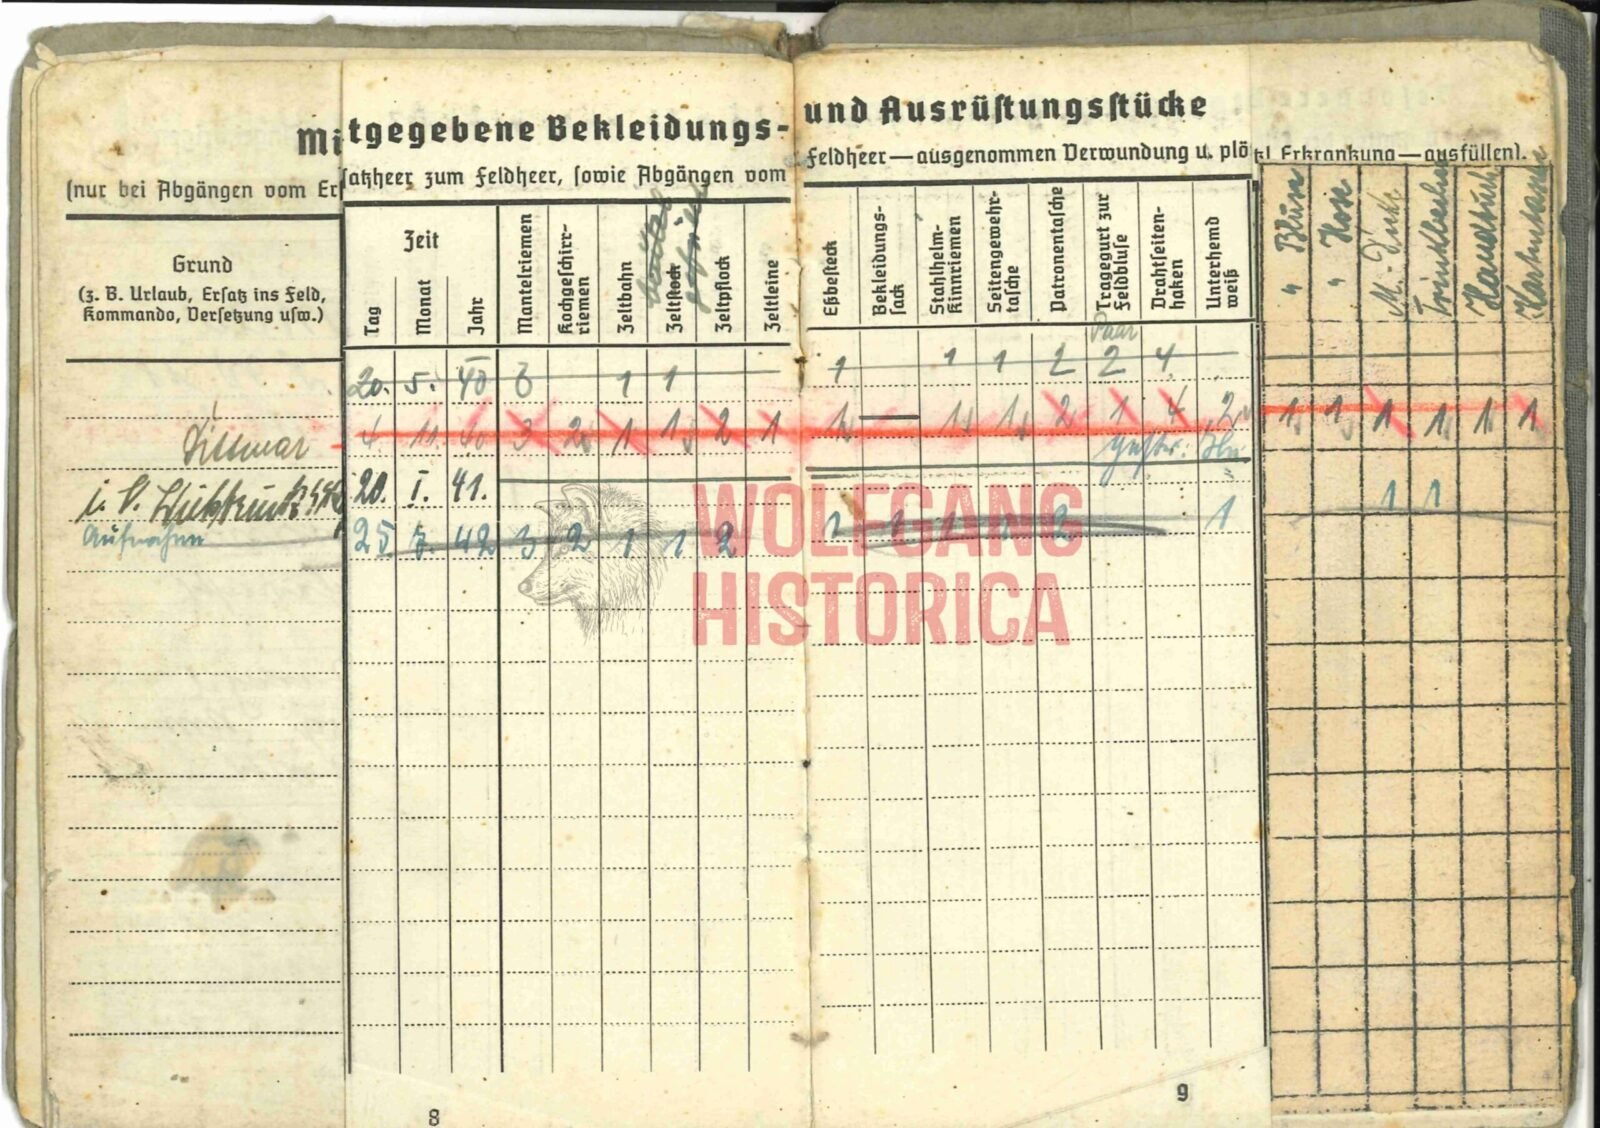 Mitgegebene Bekleidungs- und Ausrüstungsstücke
(nur bei Abgängen vom Ersatzheer zum Feldheer, sowie Abgängen vom Feldheer — ausgenommen Verwundung u. plötzl. Erkrankung — ausfüllen).
Grund
(z. B. Urlaub, Ersatz ins Feld,
Kommando, Versetzung usw.)
Zeit
Tag
Monat
Jahr
Mantelriemen
Kochgeschirr-
riemen
Zeltbahn
Zeltstock
Zeltpflock
Zeltleine
Eßbesteck
Bekleidungs-
sack
Stahlhelm-
Kinnriemen
Seitengewehr-
tasche
Patronentasche
Tragegurt zur
Feldbluse
Drahtseiten-
haken
Unterhemd
weiß
" Bluse
" Hose
Trinkbecher
Paar
20. 5. 40 3 1 1 1 1 1 2 2 4
4. 11. 40 3 2 1 1 2 1 1 — 1 1 2 1 4 2 1 1 1 1 1 1
20. I. 41.
1 1
25 42 3 2 1 1 2 1 1 1 1 2 1
WOLFGANG
HISTORICA
8
9